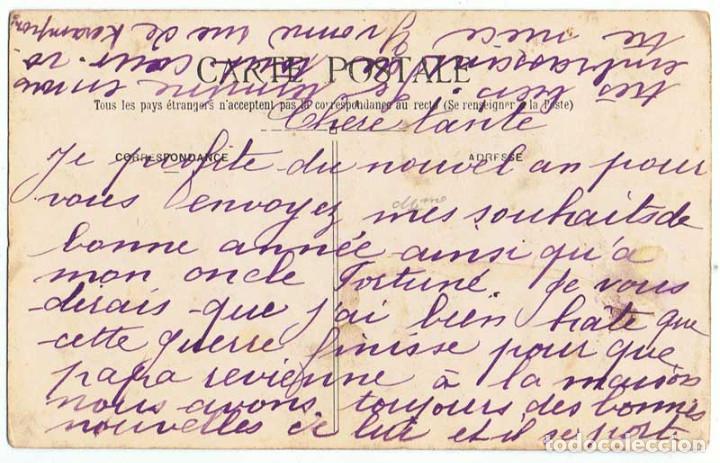 CARTE POSTALE
Tous les pays étrangers n'acceptent pas la correspondance au recto (Se renseigner à la Poste)
CORRESPONDANCE
ADRESSE
Chere tante
Je profite du nouvel an pour
vous envoyez mes souhaits de
bonne année ainsi qu'a
mon oncle Fortuné. Je vous
dirais que j'ai bien hate que
cette guerre finisse pour que
papa revienne à la maison
nous avons toujours des bonnes
nouvelles de lui et il se porte
très bien. Je termine en vous
embrassant de coeur
ta niece Yvonne rue de
todocoleccion